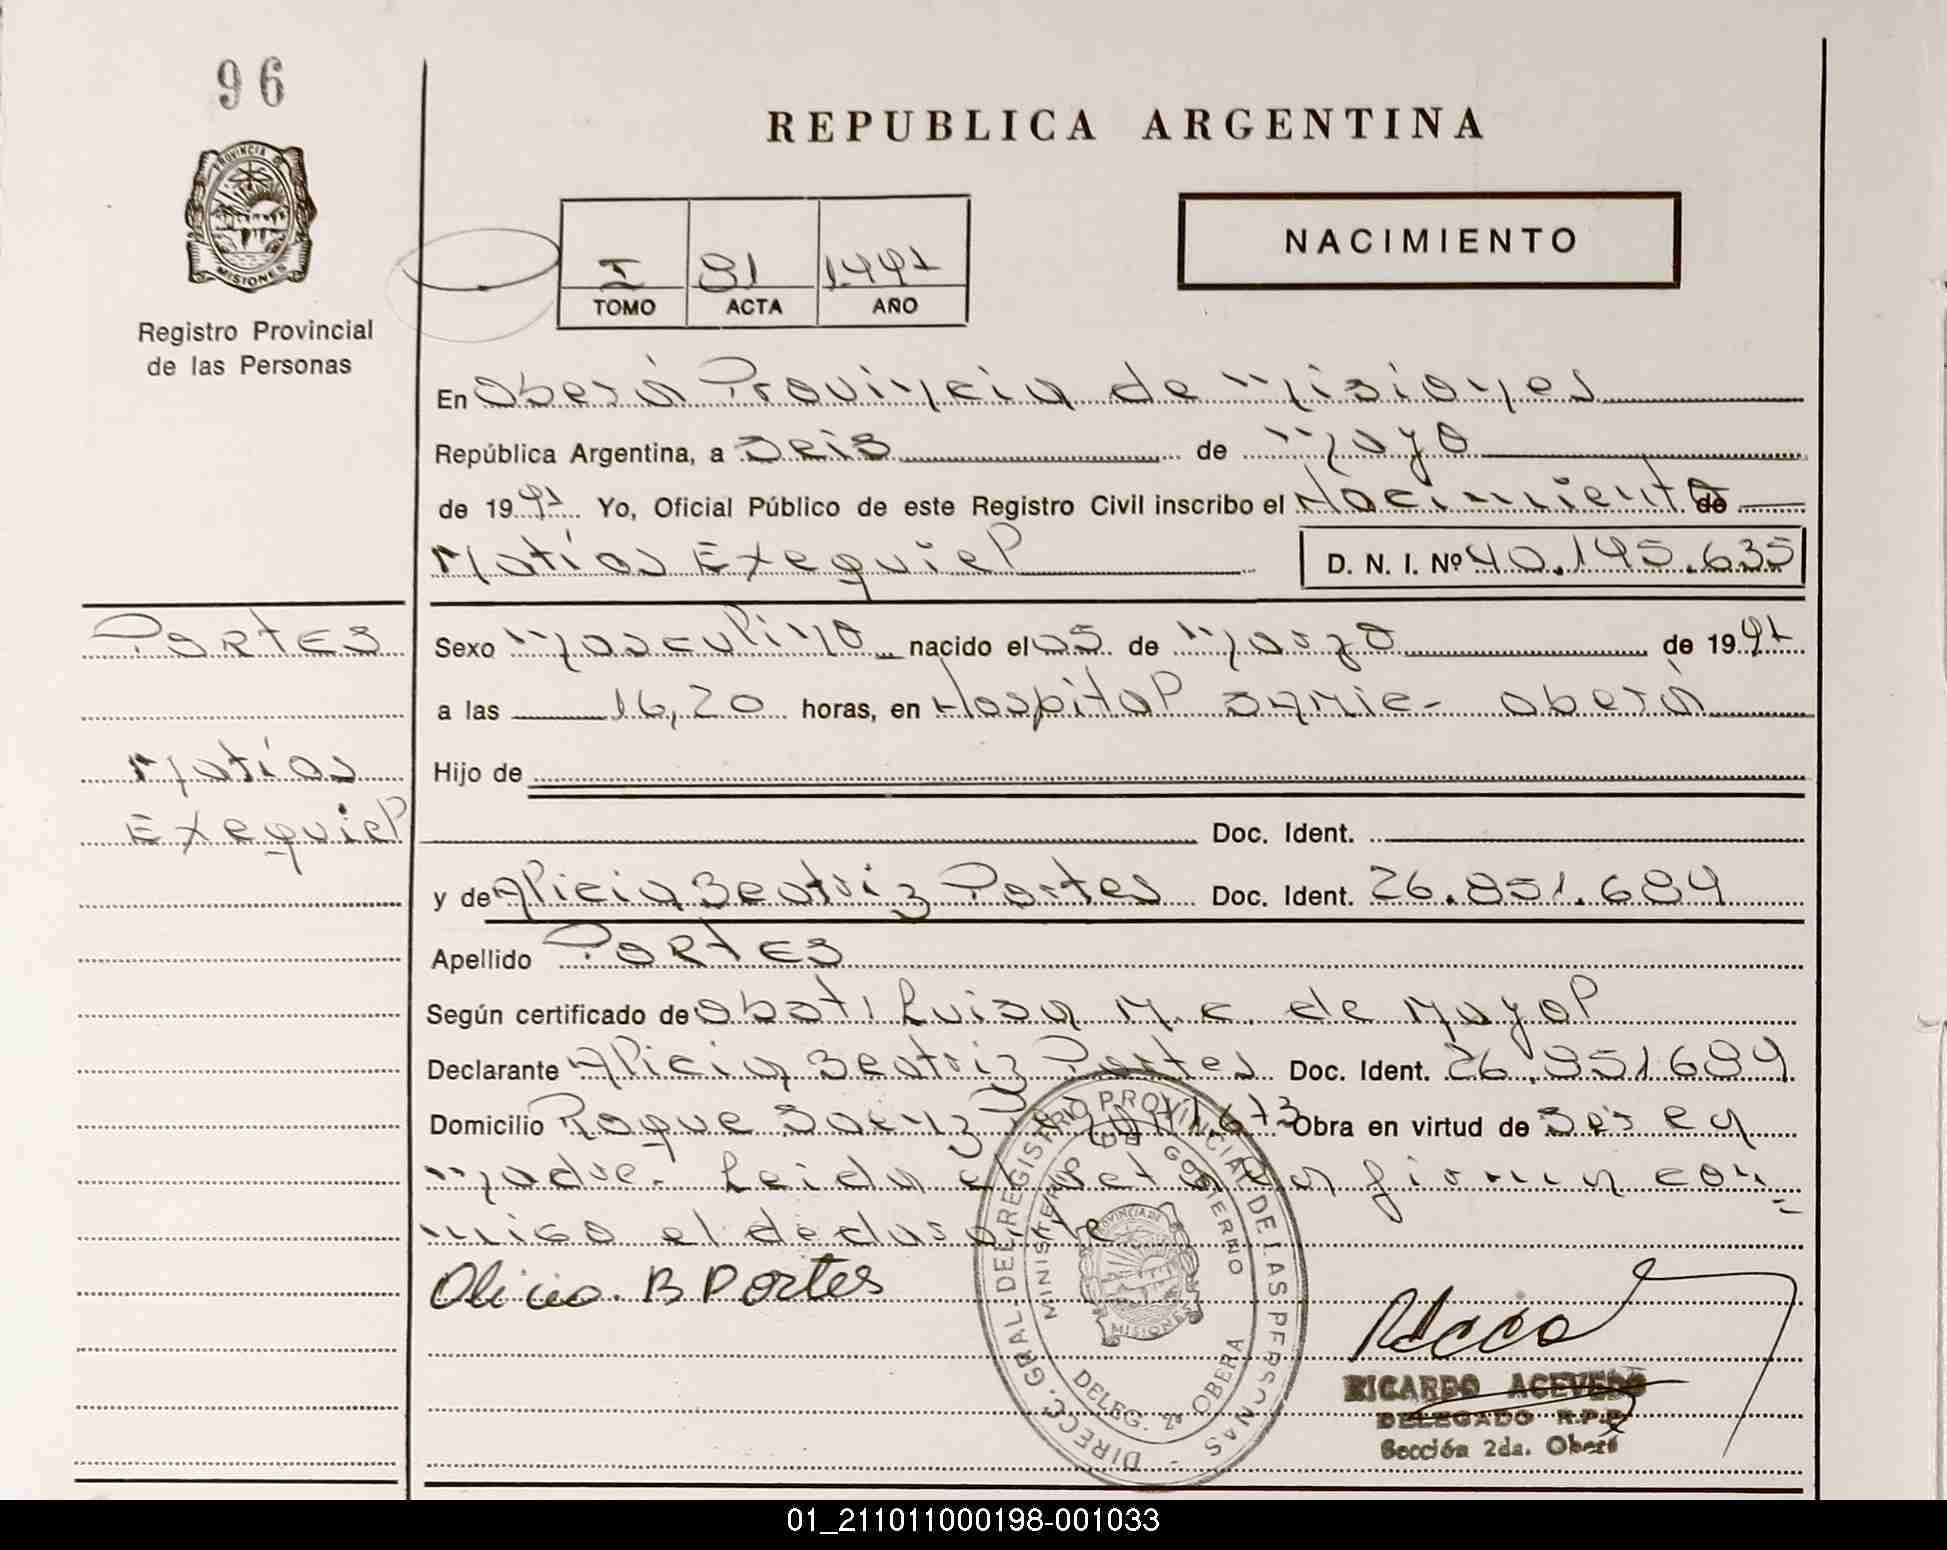 96
REPUBLICA ARGENTINA
PROVINCIA DE
MISIONES
Registro Provincial
de las Personas
NACIMIENTO
I 91 1997
TOMO ACTA AÑO
En Oberá Provincia de Misiones
República Argentina, a Seis de Mayo
de 1997 Yo, Oficial Público de este Registro Civil inscribo el Nacimiento de
Matías Exequiel D. N. I. Nº 40.195.635
Portes
Matías
Exequiel
Sexo Masculino nacido el 05 de Marzo de 1997
a las 16,20 horas, en Hospital Samic- Oberá
Hijo de
Doc. Ident.
y de Alicia Beatriz Portes Doc. Ident. 26.851.689
Apellido Portes
Según certificado de Obst. Luisa M. C. de Mayol
Declarante Alicia Beatriz Portes Doc. Ident. 26.851.689
Domicilio Roque Saenz Obra en virtud de Ser la
Madre. Leida el acta la firman con-
migo el declarante
Alicia B Portes
DIRECC. GRAL. DEL REGISTRO PROVINCIAL DE LAS PERSONAS
MINISTERIO DE GOBIERNO
PROVINCIA DE
MISIONES
DELEG. 2ª OBERA
RICARDO ACEVEDO
DELEGADO R.P.P.
Sección 2da. Oberá
01_211011000198-001033